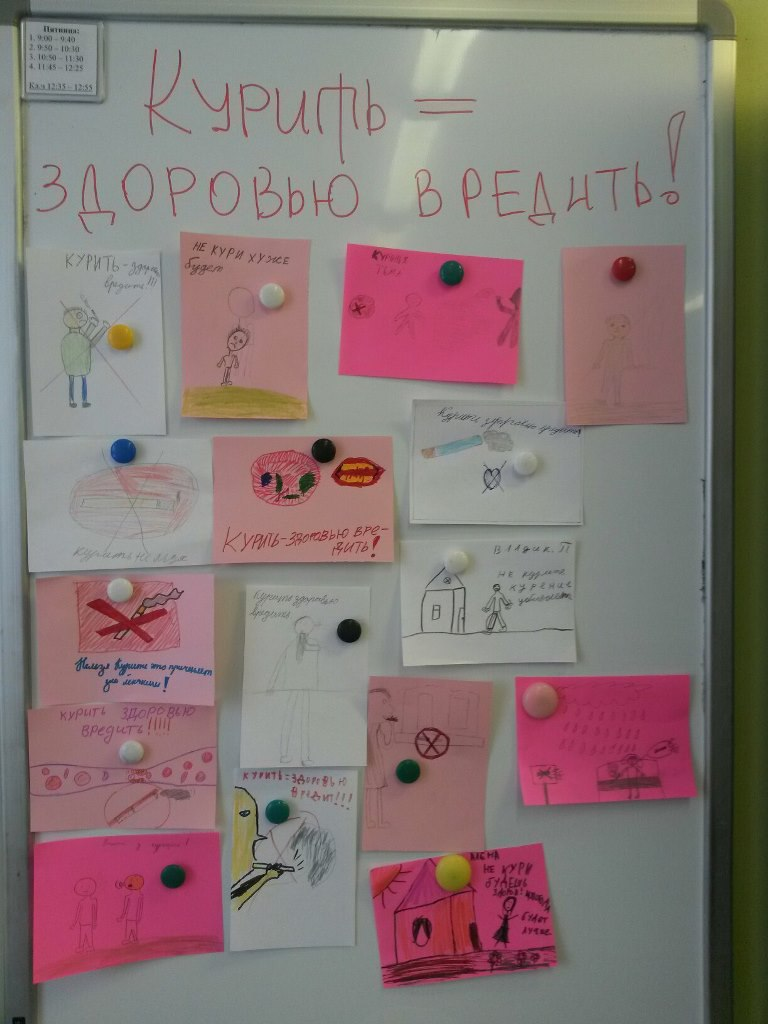 Пятница:
1. 9:00 – 9:40
2. 9:50 – 10:30
3. 10:50 – 11:30
4. 11:45 – 12:25
Кл.ч 12:35 – 12:55
Курить =
ЗДОРОВЬЮ ВРЕДИТЬ!
КУРИТЬ-
вредить!!!
НЕ КУРИ ХУЖЕ
будет
Курить здоровью
Курить нельзя
КУРИТЬ-ЗДОРОВЬЮ ВРЕ-
ДИТЬ!
ВЛАДИК. П
НЕ
КУРЕНИЕ
убивает
Нельзя Курить это причиняет
Курить здоровью
вредить
КУРИТЬ ЗДОРОВЬЮ
ВРЕДИТЬ!!!!!
КУРИТЬ=ЗДОРОВЬЮ
ВРЕДИТ!!!
НЕ КУРИ
БУДЕШЬ
ЗДОРОВ!
БУДЕТ
ЛУЧШЕ